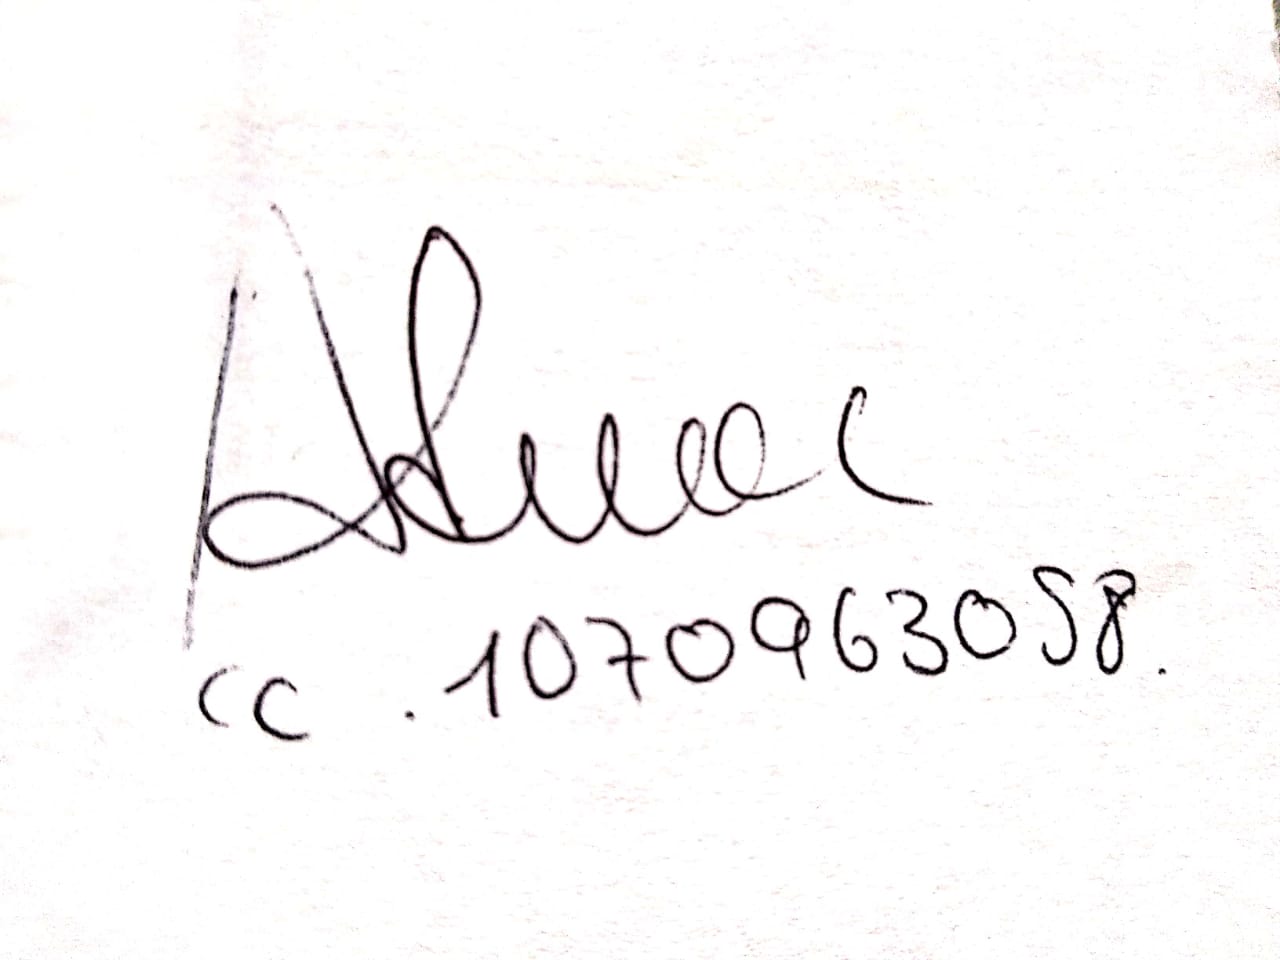 cc . 1070963058.